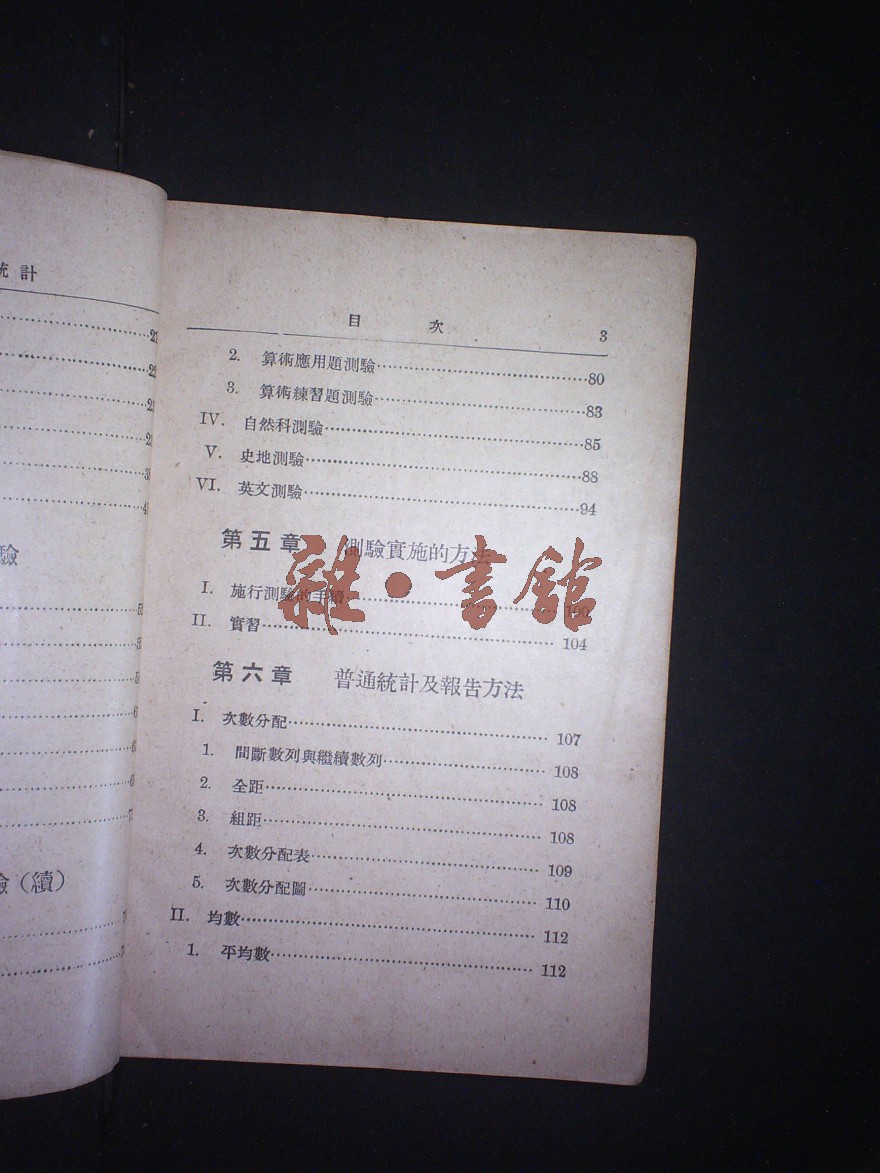 統計
驗
驗(續)
目 次 3
2. 算術應用題測驗……80
3. 算術練習題測驗……83
IV. 自然科測驗……85
V. 史地測驗……88
VI. 英文測驗……94
第五章 測驗實施的方法
I. 施行測驗的手續……100
II. 實習……104
第六章 普通統計及報告方法
I. 次數分配……107
1. 間斷數列與繼續數列……108
2. 全距……108
3. 組距……108
4. 次數分配表……109
5. 次數分配圖……110
II. 均數……112
1. 平均數……112
雜·書館